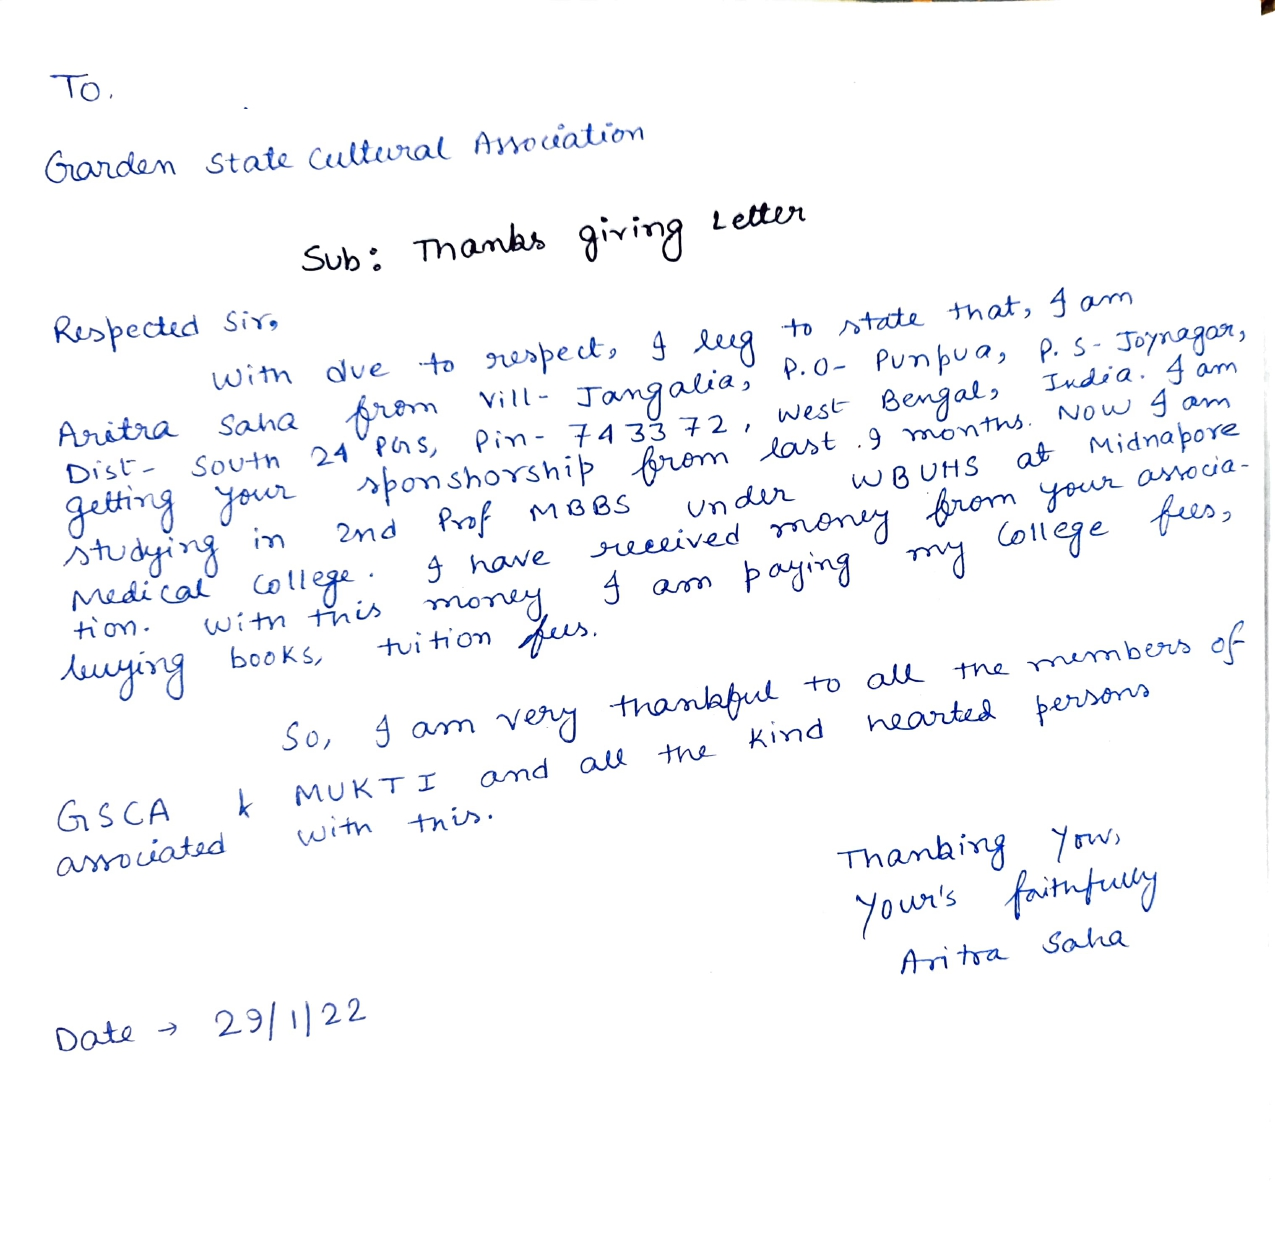 To,
Garden State Cultural Association
Sub: Thanks giving Letter
Respected Sir,
With due to respect, I beg to state that, I am
Aritra Saha from Vill- Jangalia, P.O- Punpua, P.S- Joynagar,
Dist- South 24 PGS, Pin- 743372, West Bengal, India. I am
getting your sponshorship from last 9 months. Now I am
studying in 2nd Prof MBBS under WBUHS at Midnapore
Medical College. I have received money from your associa-
tion. With this money I am paying my College fees,
buying books, tuition fees.
So, I am very thankful to all the members of
GSCA & MUKTI and all the kind hearted persons
associated with this.
Thanking You,
Your's faithfully
Aritra Saha
Date → 29/1/22